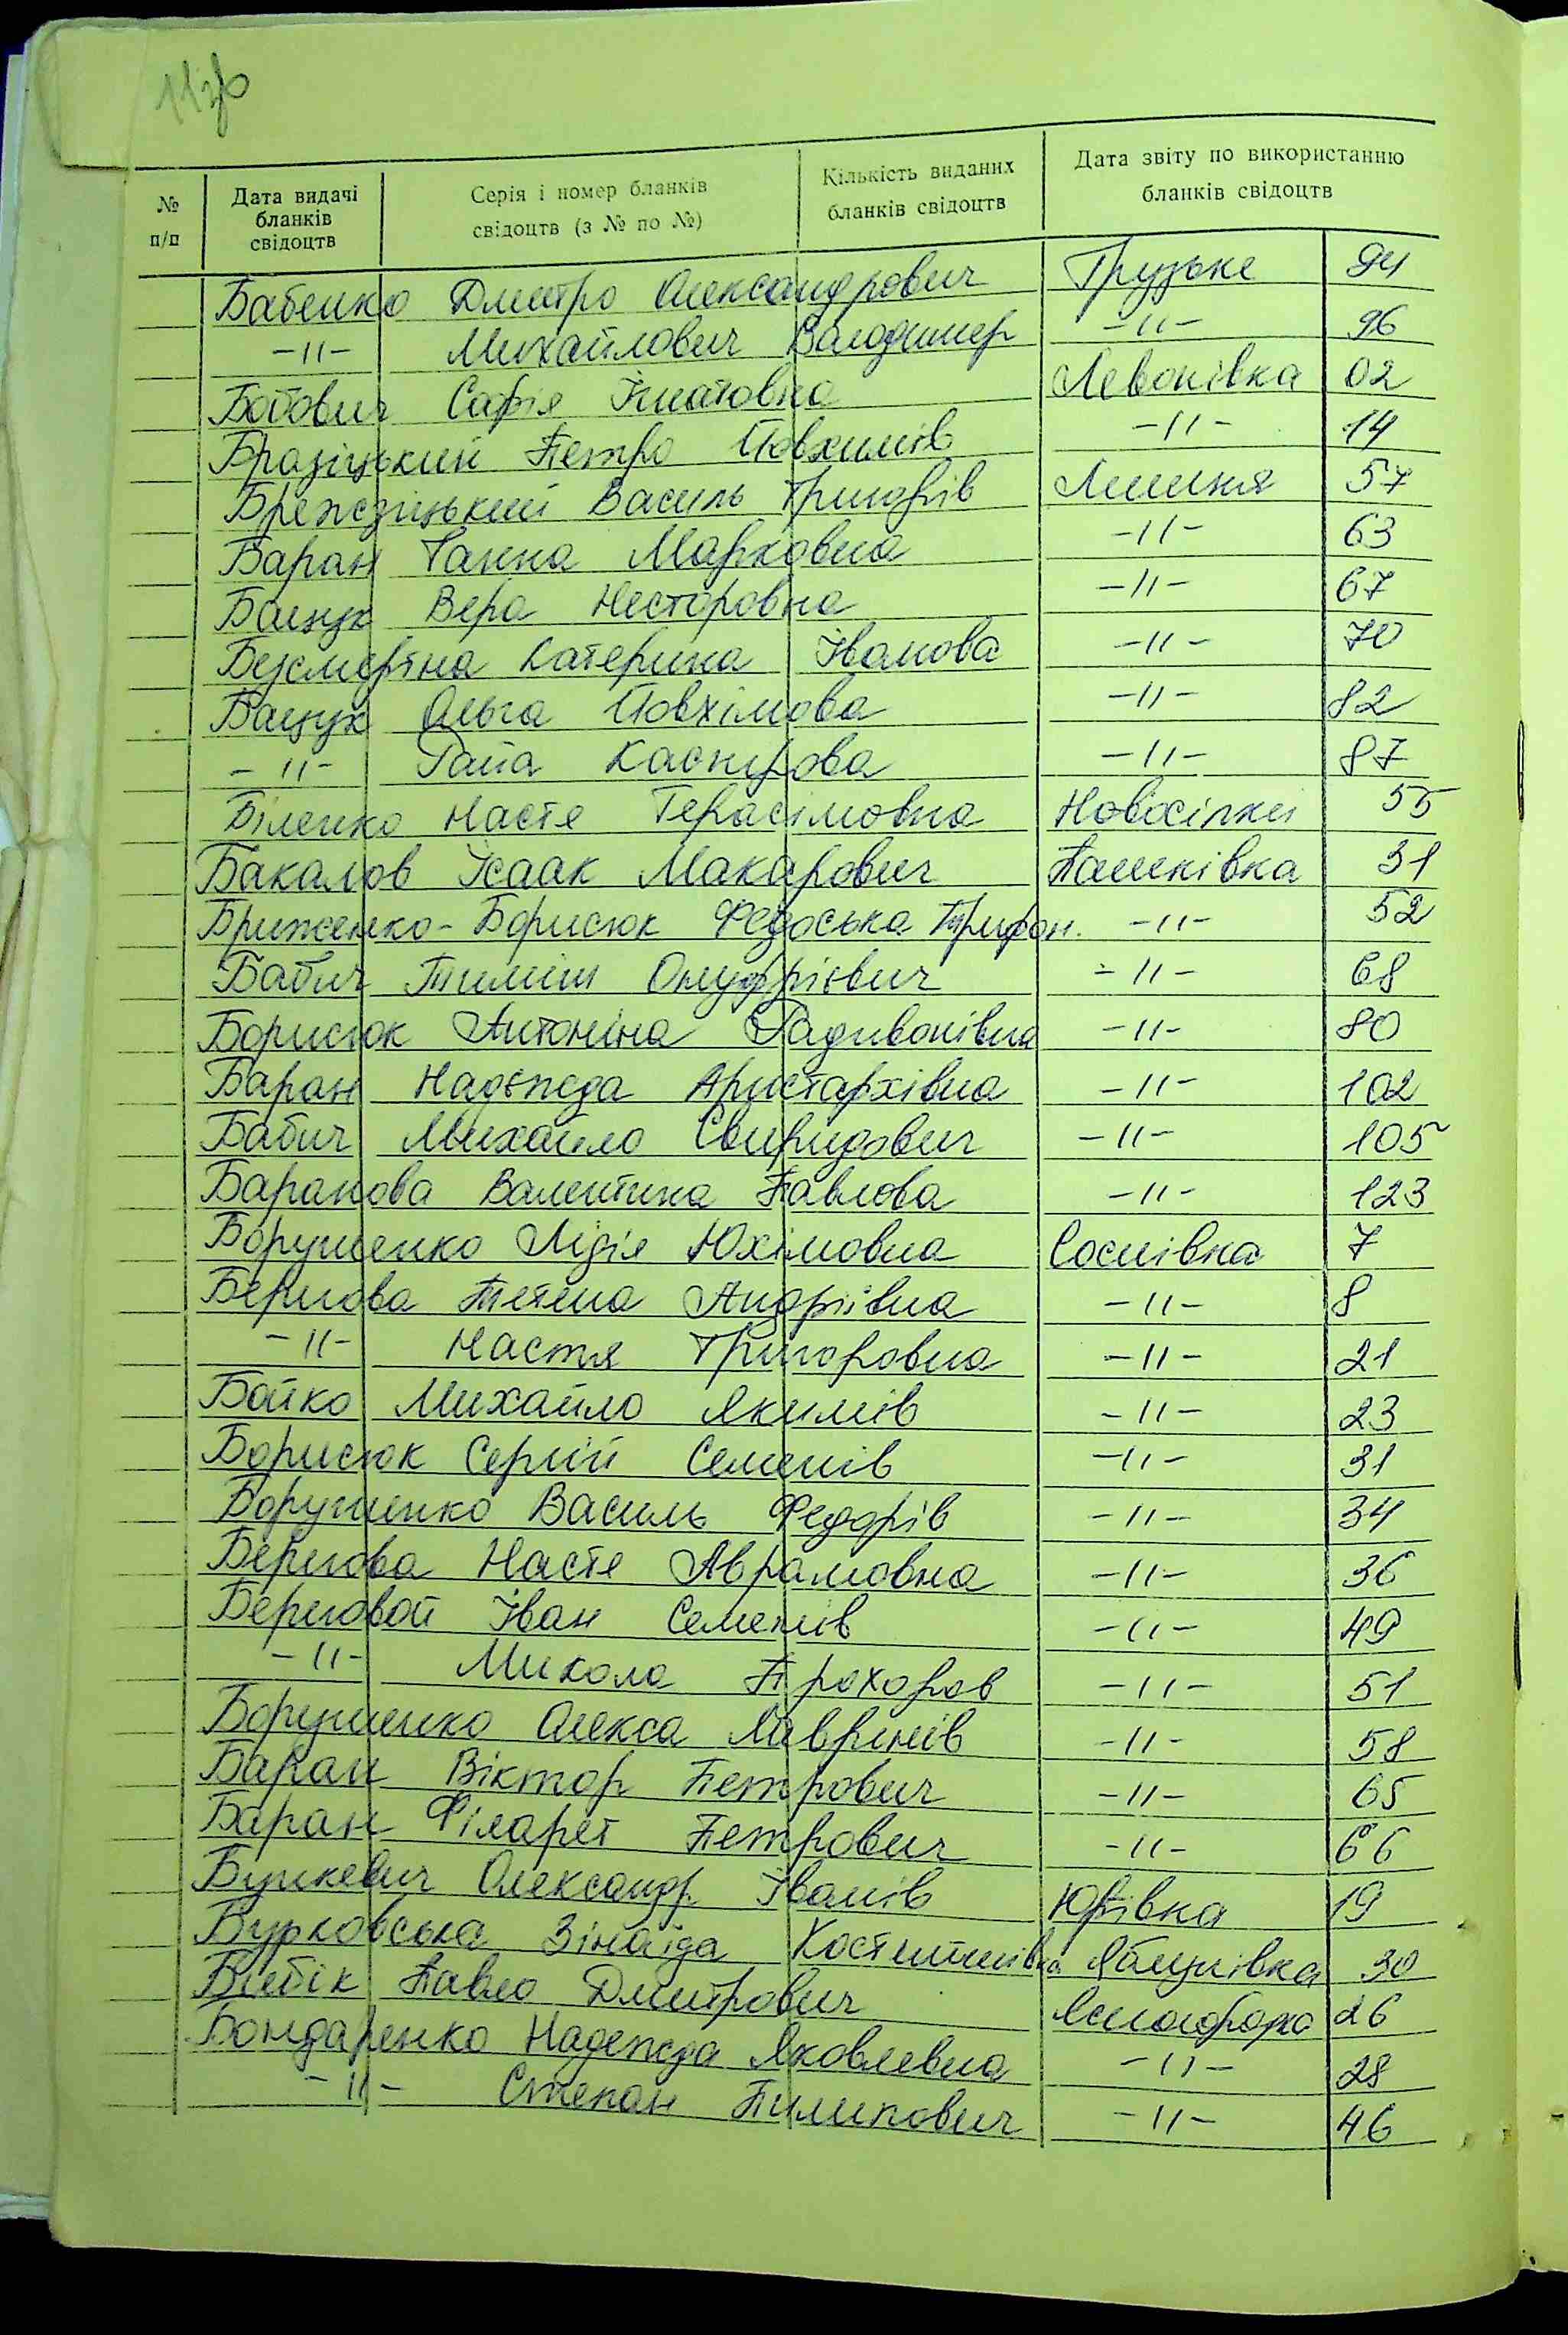 11зв
№ п/п
Дата видачі бланків свідоцтв
Серія і номер бланків свідоцтв (з № по №)
Кількість виданих бланків свідоцтв
Дата звіту по використанню бланків свідоцтв
Бабенко Дмитро Олександрович Грузьке 94
-//- Михайлович Володимер -//- 96
Бабович Софія Ігнатовна Левонівка 02
Бразіцький Петро Йовхимів -//- 14
Брежзіцький Василь Григорів Лишня 57
Баран Ганна Марковна -//- 63
Бащук Вера Несторовна -//- 67
Безсмертна Катерина Іванова -//- 70
Бащук Ольга Йовхімова -//- 82
-//- Гапа Каспирова -//- 87
Біленко Настя Герасімовна Новосілки 55
Бакалов Ісаак Макарович Пашківка 31
Бриженко-Борисюк Федоська Трифон. -//- 52
Бабич Тиміш Онуфрієвич -//- 68
Борисюк Антоніна Радивонівна -//- 80
Баран Надежда Аристархівна -//- 102
Бабич Михайло Свиридович -//- 105
Баранова Валентина Павлова -//- 123
Борушенко Лідія Юхімовна Соснівка 7
Берегова Тетяна Андріївна -//- 8
-//- Настя Григоровна -//- 21
Бойко Михайло Якимів -//- 23
Борисюк Сергій Семенів -//- 31
Борушенко Василь Федорів -//- 34
Берегова Настя Аврамовна -//- 36
Береговой Іван Семенів -//- 49
-//- Микола Прохоров -//- 51
Борушенко Олекса Лавринів -//- 58
Баран Віктор Петрович -//- 65
Баран Філарет Петрович -//- 66
Бушкевич Олександр Іванів Юрівка 19
Бурковська Зінаїда Костянтинівна Яблунівка 30
Бібік Павло Дмитрович Ясногородка 26
Бондаренко Надежда Яковлевна -//- 28
-//- Степан Пилипович -//- 46